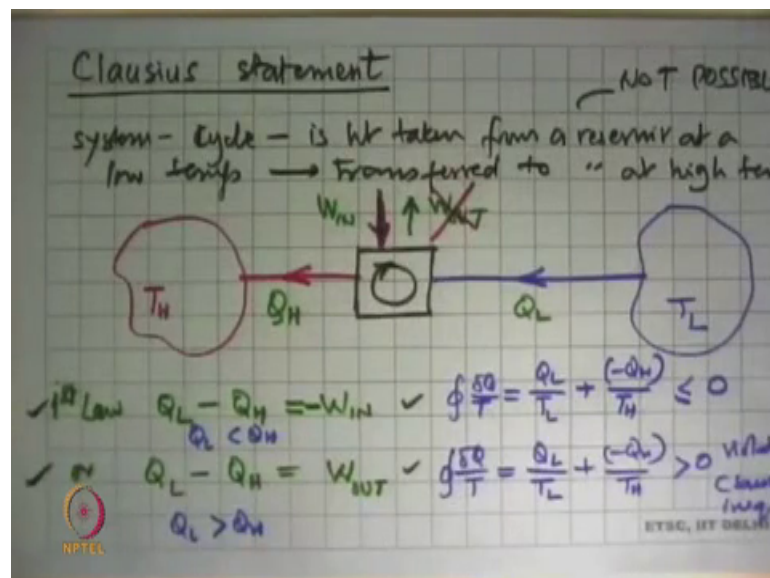 Clausius statement
NOT POSSIBL
system - cycle - is ht taken from a reservoir at a
low temp → Transferred to " at high tem
W_IN ↑ W_OUT
T_H Q_H Q_L T_L
✓ 1st Law Q_L - Q_H = -W_IN ✓ ∮ δQ/T = Q_L/T_L + (-Q_H)/T_H ≤ 0
Q_L < Q_H
✓ " Q_L - Q_H = W_OUT ✓ ∮ δQ/T = Q_L/T_L + (-Q_H)/T_H > 0
Q_L > Q_H
ETSC, IIT DELHI
NPTEL